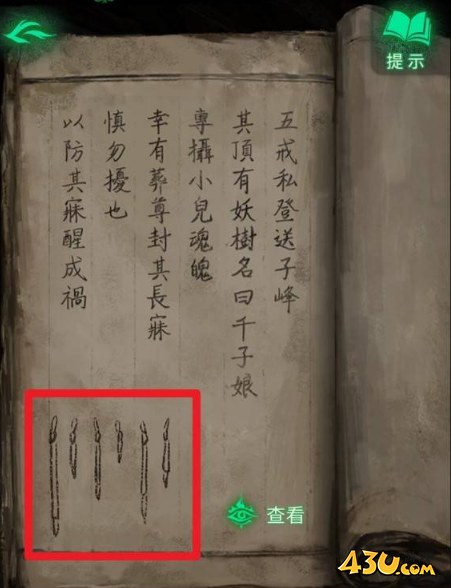 提示
五戒私登送子峰
其頂有妖樹名曰千子娘
專攝小兒魂魄
幸有葬尊封其長寐
慎勿擾也
以防其寐醒成禍
查看
43U.COM